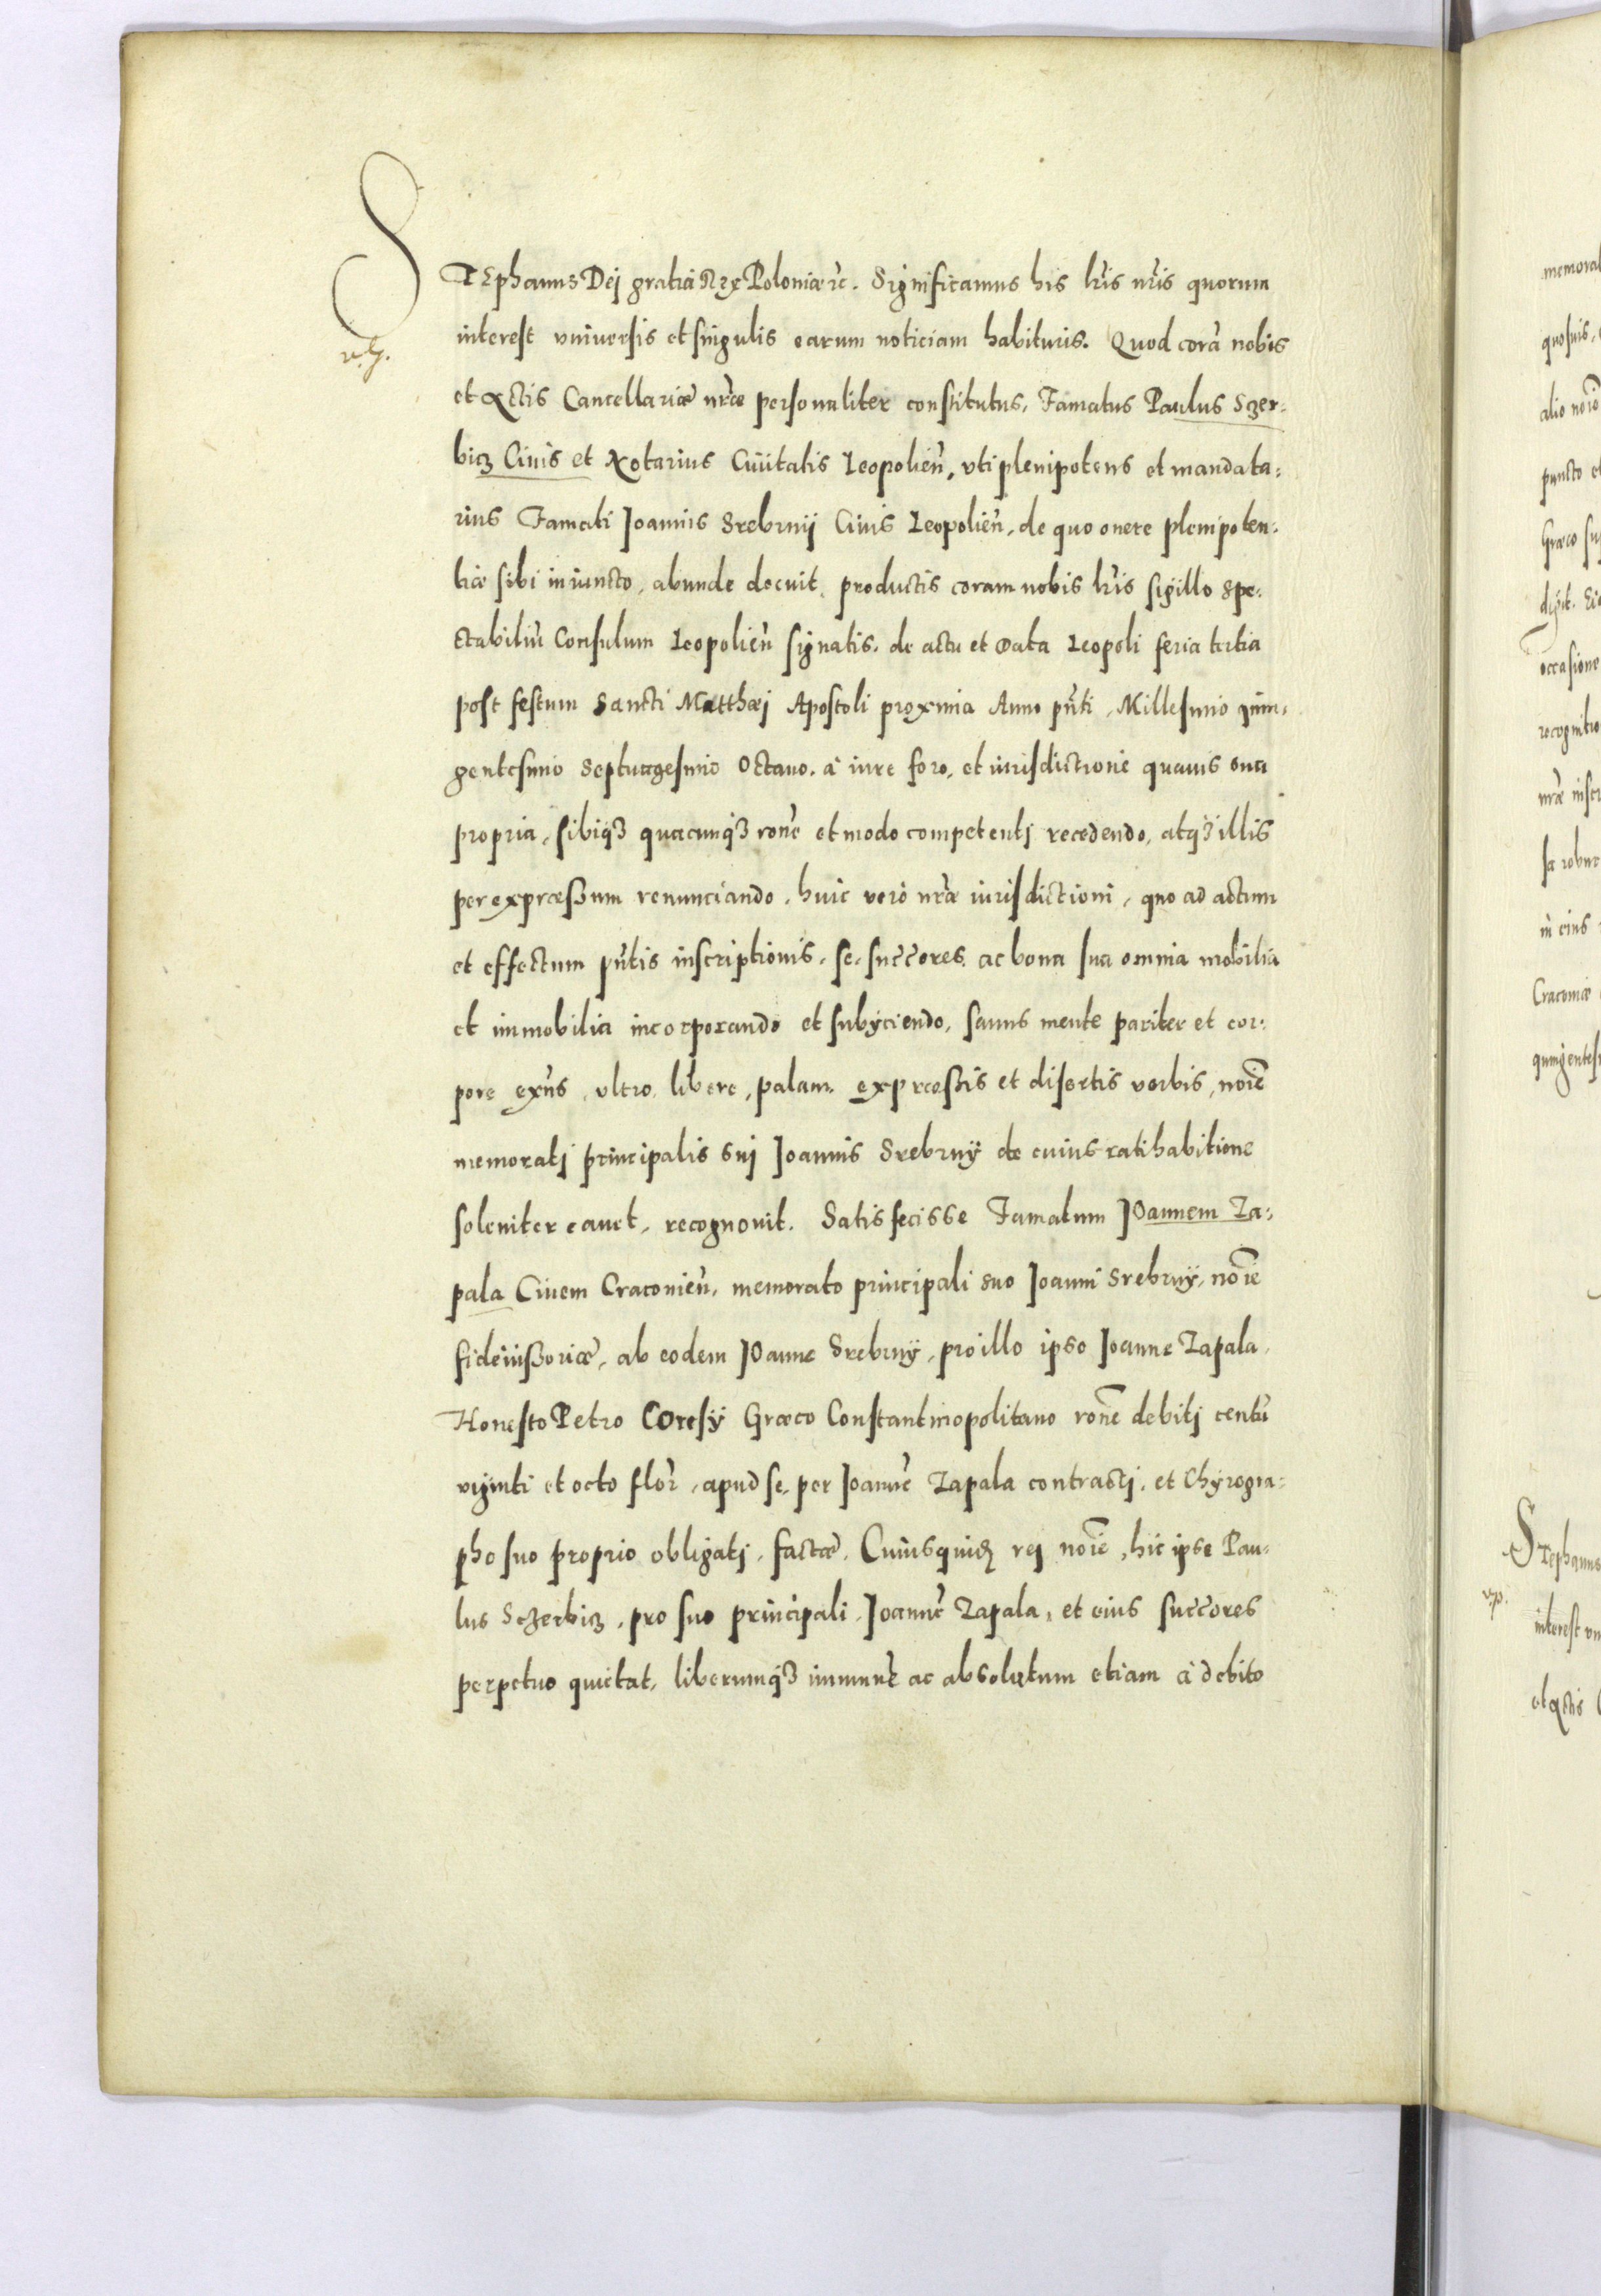 STEphanus Dej gratia Rex Poloniæ rc. Significamus his lr̃is nr̃is quorum
interest vniuersis et singulis earum noticiam habituris. Quod corã nobis
et Actis Cancellariæ nr̃æ personaliter constitutus, Famatus Paulus Sczer-
bicz Ciuis et Notarius Ciuitatis Leopolien̄, vti plenipotens et mandata-
rius Famati Joannis Srebrnij Ciuis Leopolien̄, de quo onere plenipoten-
tiæ sibi iniuncto, abunde docuit, productis coram nobis lr̃is sigillo Spe-
ctabiliũ Consulum Leopolien̄ signatis, de actu et data Leopoli feria tertia
post festum Sancti Matthæj Apostoli proxima Anno pñti, Millesimo quin-
gentesimo Septuagesimo Octauo. à iure foro, et iurisdictione quauis sua
propria, sibiq3 quacunq3 rone et modo competentj recedendo, atq3 illis
per expræssum renunciando, huic verò nr̃æ iurisdictioni, quo ad actum
et effectum pñtis inscriptionis, se, succores, ac bona sua omnia mobilia
et immobilia incorporando et subijciendo, sanus mente pariter et cor-
pore exñs, vltro, libere, palam, expræssis et disertis verbis, noie
memoratj principalis suj Joannis Srebrnÿ de cuius ratihabitione
soleniter cauet, recognouit. Satisfecisse Famatum Joannem Za-
pala Ciuem Cracouien̄, memorato principali suo Joanni Srebrnÿ, noie
fideiussoriæ, ab eodem Joanne Srebrnÿ, pro illo ipso Joanne Zapala,
Honesto Petro Coresÿ Græco Constantinopolitano rone debitj centũ
viginti et octo flor̄, apud se, per Joannẽ Zapala contractj, et Chyrogra-
pho suo proprio obligatj, factæ. Cuius quidẽ rej noie, hic ipse Pau-
lus Sczerbicz, pro suo principali, Joannẽ Zapala, et eius succores
perpetuo quietat, liberumq3 immunẽ ac absolutum etiam à debito